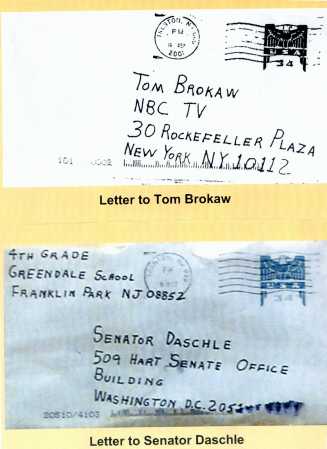 PM
2001
USA
34
TOM BROKAW
NBC TV
30 ROCKEFELLER PLAZA
NEW YORK NY 10112
Letter to Tom Brokaw
4TH GRADE
GREENDALE SCHOOL
FRANKLIN PARK NJ 08852
USA
34
SENATOR DASCHLE
509 HART SENATE OFFICE
BUILDING
WASHINGTON D.C. 205
20510/4103
Letter to Senator Daschle